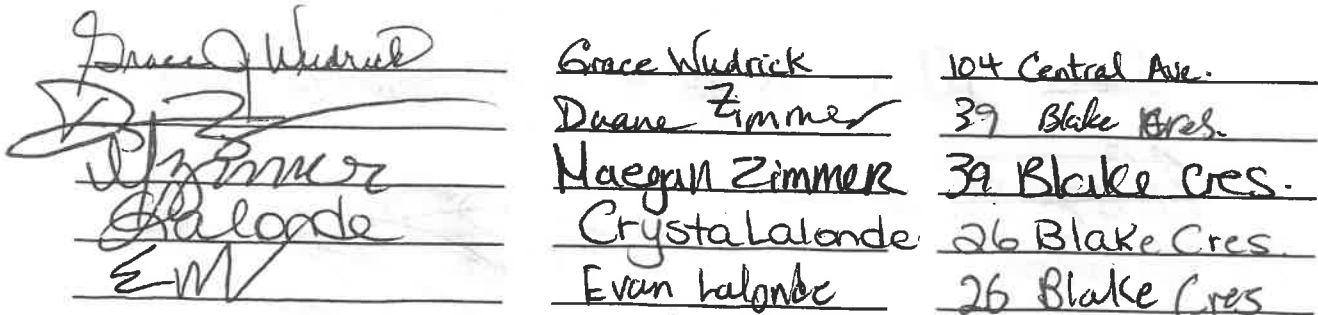 Grace J Wudrick Grace Wudrick 104 Central Ave.
Duane Zimmer 39 Blake Cres.
MZimmer Maegan Zimmer 39 Blake Cres.
CLalonde Crysta Lalonde 26 Blake Cres.
Evan Lalonde 26 Blake Cres